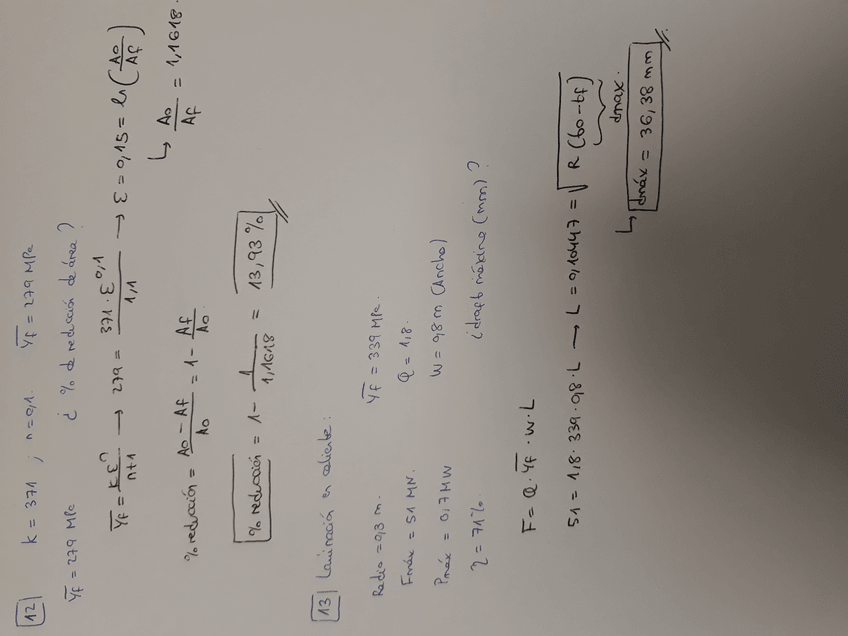 12 k = 371 ; n=0,1. Yf = 279 MPa
Yf = 279 MPa ¿ % de reducción de área?
Yf = k ε^n / n+1 → 279 = 371 · ε^0,1 / 1,1 → ε = 0,15 = ln(Ao/Af)
↳ Ao/Af = 1,1618.
% reducción = Ao - Af / Ao = 1 - Af/Ao.
% reducción = 1 - 1/1,1618 = 13,93 %
13 Laminación en caliente:
Radio = 0,3 m. Yf = 339 MPa.
Fmáx = 51 MN. Q = 1,8.
Pmáx = 0,7 MW W = 0,8 m (Ancho)
η = 71% ¿draft máximo (mm)?
F = Q · Yf · w · L
51 = 1,8 · 339 · 0,8 · L → L = 0,10447 = √R (to - tf)
dmax.
↳ dmáx = 36,38 mm